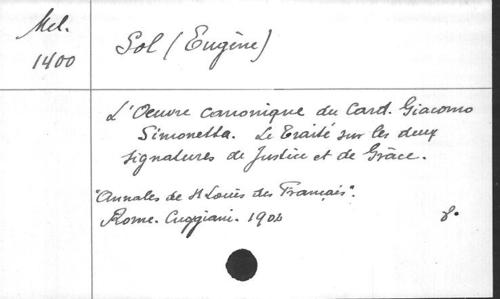 Mel.
1400
Sol (Eugène)
L'Oeuvre canonique du Card. Giacomo
Simonetta. Le Traité sur les deux
signatures de Justice et de Grâce.
"Annales de St Louis des Français".
Rome. Cuggiani. 1904
8.